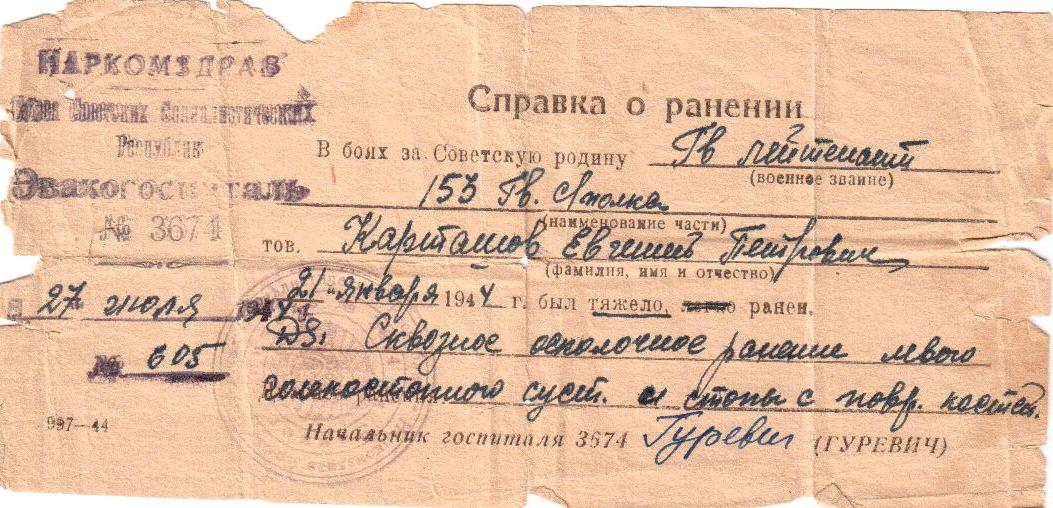 НАРКОМЗДРАВ
Союза Советских Социалистических
Республик
Эвакогоспиталь
№ 3674
27 июля 1944 г.
№ 605
997—44
Справка о ранении
В боях за Советскую родину Гв лейтенант
(военное звание)
153 Гв. Ап полка
(наименование части)
тов. Карташов Евгений Петрович
(фамилия, имя и отчество)
21 января 1944 г. был тяжело, легко ранен.
DS: Сквозное осколочное ранение левого
голеностопного суст. и стопы с повр. костей.
Начальник госпиталя 3674 Гуревич (ГУРЕВИЧ)